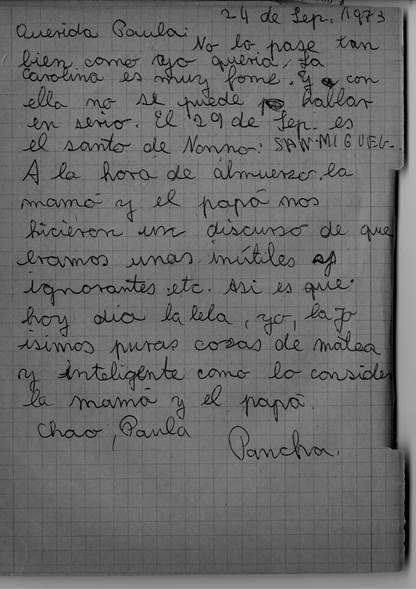 24 de Sep. 1973
Querida Paula:
No lo pase tan
bien como yo quería. La
Carolina es muy fome. Y con
ella no se puede hablar
en serio. El 29 de Sep. es
el santo de Nonno: SAN-MIGUEL-.
A la hora de almuerzo, la
mamá y el papá nos
hicieron un discurso de que
eramos unas inútiles
ignorantes, etc. Asi es que
hoy día la lela, yo, la Jo
isimos puras cosas de matea
y inteligente como lo consider
la mamá y el papá.
Chao, Paula
Pancha.